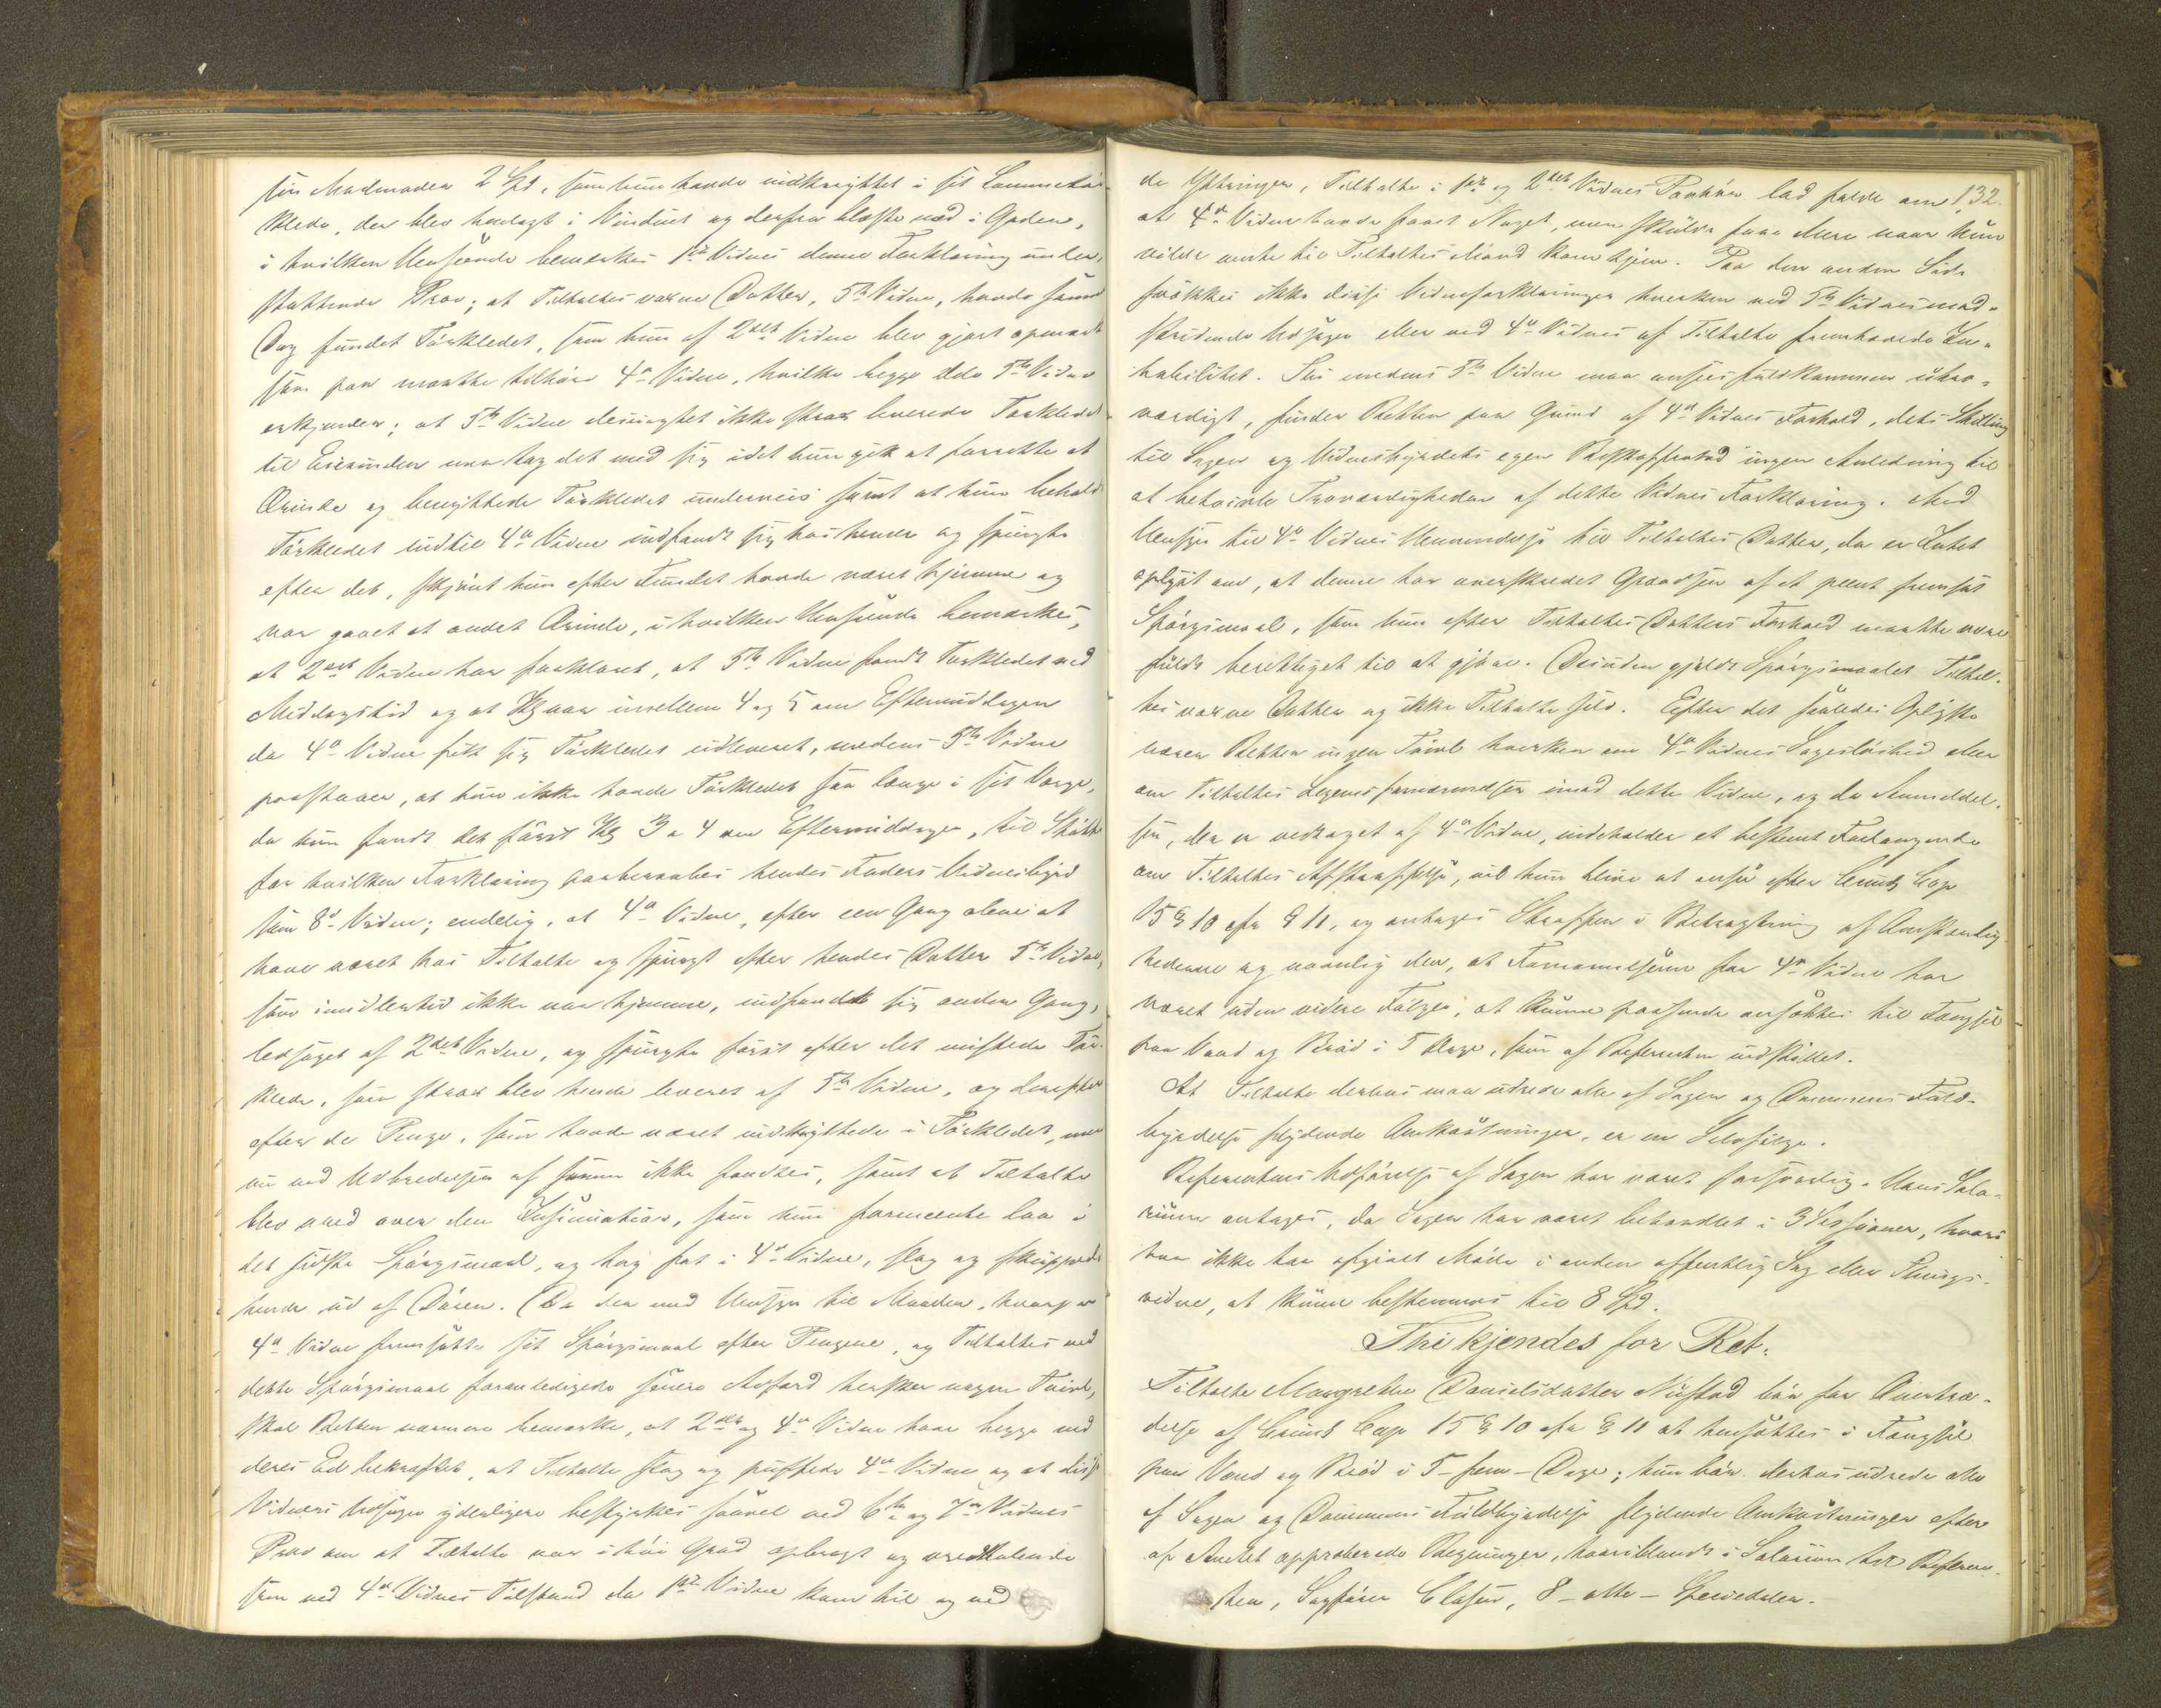 sin Madmoder 2 Spd, som hun havde indknyttet i sit Lommetør-
klæde, der blev henlagt i Vinduet og derfra blæste ned i Gaden,
i hvilken Henseende bemærkes 1ste Vidnes denne Forklaring under-
støttende Prov; at Tiltaltes voxne Datter, 5te Vidne, havde samme
Dag fundet Tørklædet, som hun af 2det Vidne blev gjort opmærk-
som paa maatte tilhøre 4de Vidne, hvilke begge Dele 5te Vidne
erkjender; at 5te Vidne desuagtet ikke strax leverede Tørklædet
til Eierinden men tog det med sig idet hun gik at forrette et
Ærinde og benyttede Tørklædet underveis samt at hun beholdt
Tørklædet indtil 4de Vidne indfandt sig hos hende og spurgte
efter det, skjønt hun efter Fundet havde været hjemme og
var gaaet et andet Ærinde, i hvilken Henseende bemærkes,
at 2det Vidne har forklaret, at 5te Vidne fandt Tørklædet ved
Middagstid og at Kl var imellem 4 og 5 om Eftermiddagen
da 4de Vidne fik sig Tørklædet udleveret, medens 5te Vidne
paastaaer, at hun ikke havde Tørklædet saa længe i sit Værge,
da hun fandt det først Kl 3 a 4 om Eftermiddagen, til Støtte
for hvilken Forklaring paaberaabes hendes Faders Vidnesbyrd
som 8de Vidne; endelig, at 4de Vidne, efter een Gang alene at
have været hos Tiltalte og spurgt efter hendes Datter 5te Vidne,
som imidlertid ikke var hjemme, indfandt sig anden Gang,
ledsaget af 2det Vidne, og spurgte først efter det mistede Tør-
klæde, som strax blev hende leveret af 5te Vidne, og derefter
efter de Penge, som havde været indknyttede i Tørklædet, men
nu ved Udbredelsen af samme ikke fandtes, samt at Tiltalte
blev vred over den Insinuation, som hun formeente laa i
det sidste Spørgsmaal, og tog fat i 4de Vidne, slog og skuppede
hende ud af Døren. Da der med Hensyn til Maaden, hvorpaa
4de Vidne fremsatte sit Spørgsmaal efter Pengene, og Tiltaltes ved
dette Spørgsmaal foranledigede senere Adfærd hersker nogen Tvivl,
skal Retten nærmere bemærke, at 2det og 4de Vidne have begge ved
deres Ed bekræftet, at Tiltalte slog og puffede 4de Vidne og at disse
Vidners Udsagn yderligere bestyrkes saavel ved 6te og 7de Vidnes
Prov om at Tiltalte var i høi Grad opbragt og
som ved 4de Vidnes Tilstand da 1ste Vidne kom til og ved
132.
de Yttringer, Tiltalte i 1ste og 2det Vidnes Paahør lod falde om
at 4de Vidne havde faaet Noget, men skulde faae Mere naar hun
vilde vente til Tiltaltes Mand kom hjem. Paa den anden Side
svækkes ikke disse Vidneforklaringer hverken ved 5te Vidnes mod-
stridende Udsagn eller ved 4de Vidnes af Tiltalte fremhævede In-
habilitet. Thi medens 5te Vidne maa ansees fuldkommen utro-
værdigt, finder Retten paa Grund af 4de Vidnes Forhold, dets Stilling
til Sagen og Vidnesbyrdets egen Beskaffenhed ingen Anledning til
at betvivle Troværdigheden af dette Vidnes Forklaring. Med
Hensyn til 4de Vidnes Henvendelse til Tiltaltes Datter, da er Intet
oplyst om, at denne har overskredet Grændsen af et pænt fremsat
Spørgsmaal, som hun efter Tiltaltes Datters Forhold maatte være
fuldt berettiget til at gjøre. Desuden gjaldt Spørgsmaalet Tiltal-
tes voxne Datter og ikke Tiltalte selv. Efter det saaledes Oplyste
nærer Retten ingen Tvivl hverken om 4de Vidnes Sagesløshed eller
om Tiltaltes Legemsfornærmelser imod dette Vidne, og da Anmeldel-
sen, der er vedtaget af 4de Vidne, indeholder et bestemt Forlangende
om Tiltaltes Afstraffelse, vil hun blive at ansee efter Crimls Cap
15 § 10 cfr § 11, og antages Straffen i Betragtning af Omstændig-
hederne og navnlig den, at Fornærmelserne for 4de Vidne har
været uden videre Følger, at kunne passende ansættes til Fængsel
paa Vand og Brød i 5 Dage, som af Referenten indstillet.
At Tiltalte derhos maa udrede alle af Sagen og Dommens Fuld-
byrdelse flydende Omkostninger, er en Selvfølge.
Referentens Udførelse af Sagen har været forsvarlig. Hans Sala-
rium antages, da Sagen har været behandlet i 3 Sessioner, hvori
han ikke har afgivet Møde i anden offentlig Sag eller Things-
vidne, at kunne bestemmes til 8 Spd.
Thi kjendes for Ret:
Tiltalte Margrethe Danielsdatter Nustad bør for Overtræ-
delse af Crimls Cap 15 § 10 cfr § 11 at hensættes i Fængsel
paa Vand og Brød i 5 - fem - Dage; hun bør derhos udrede alle
af Sagen og Dommens Fuldbyrdelse flydende Omkostninger efter
af Amtet approberede Regninger, hvoriblandt i Salarium til Referen-
ten, Sagfører Clasen, 8 - otte - Speciedaler.